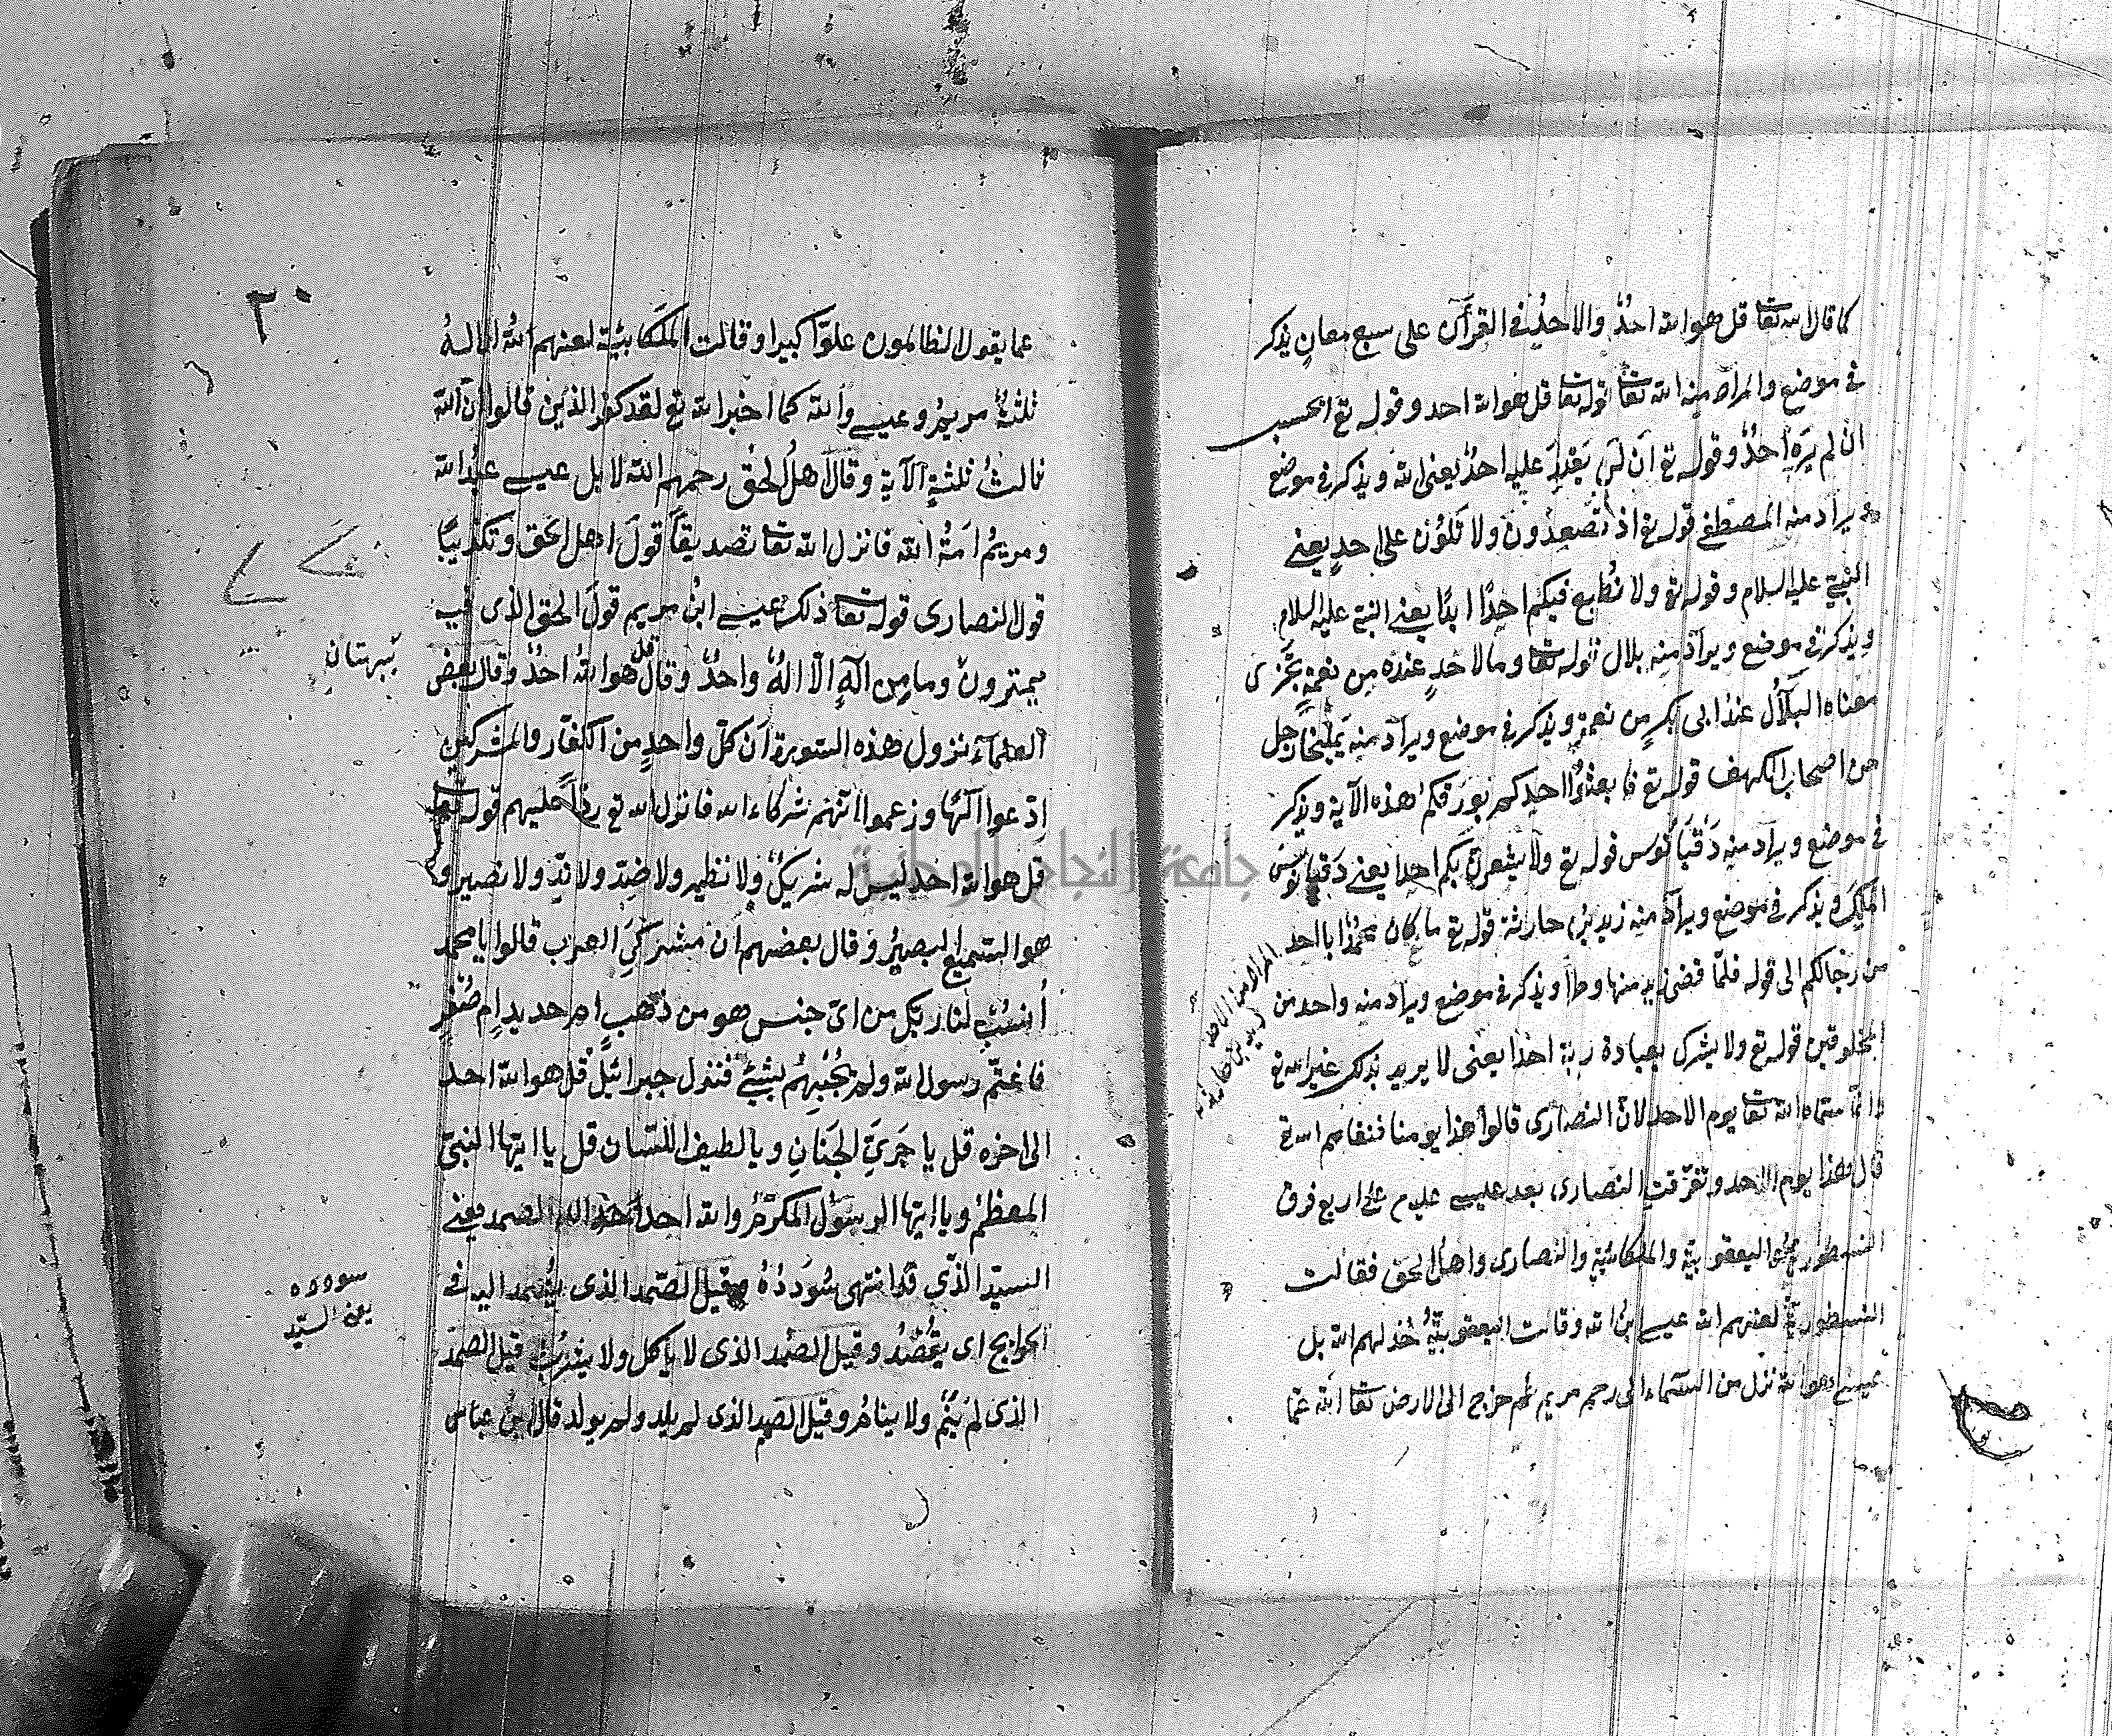 كما قال الله تعا قل هو الله احدٌ والاحدُ في القرآن على سبع معانٍ يذكر
في موضع والمراد منه الله تعا قوله تعا قل هو الله احد وقوله تع ايحسب
ان لم يَرَه احدٌ وقوله تع ان لن يقدر عليه احدٌ يعنى الله ويذكر في موضع
ويراد منه المصطفى قوله تع اذ تصعدون ولا تلوٗن على احدٍ يعنى
النبيّ عليه السلام وقوله تع ولا نُطيع فيكم احدًا ابدًا يعنى النبيّ عليه السلام
ويذكر في موضع ويراد منه بلال قوله تعا وما لاحدٍ عنده من نعمةٍ تجزى
معناه البلالُ عند ابى بكرٍ من نعمةٍ ويذكر في موضع ويراد منه يمليخا رجل
من اصحاب الكهف قوله تع فابعثوا احدكم بورقكم هذه الآية ويذكر
في موضع ويراد منه دقيانوس قوله تع ولا يشعرنّ بكم احدا يعنى دقيانوس
الملِك ويذكر في موضع ويراد منه زيد بن حارثة قوله تع ما كان محمدٌ ابا احد
من رجالكم الى قوله فلمّا قضى زيد منها وطرا ويذكر في موضع ويراد منه واحد من
المخلوقين قوله تع ولا يشرك بعبادة ربّه احدا يعنى لا يريد بذلك غير الله تع
وانّما سمّاه الله تعا يوم الاحد لانّ النصارى قالوا هذا يومنا فنفاهم الله تع
قال هذا يوم الاحد وتفرّقت النصارى بعد عيسى عليه م على اربع فرق
النسطوريّة واليعقوبيّة والملكائيّة والنصارى واهل الحق فقالت
النسطوريّة لعنهم الله عيسى ابنُ الله وقالت اليعقوبيّةُ خذلهم الله بل
عيسى هو الله نزل من السماء الى رحم مريم ثم خرج الى الارض تعا الله عمّا
المراد من الاحد
زيد بن حارثة
٣٠
عما يقول الظالمون علوّا كبيرا وقالت الملكائيّة لعنهم الله الاله
ثلثةٌ مريم وعيسى والله كما اخبر الله تع لقد كفر الذين قالوا ان الله
ثالث ثلثةٍ الآية وقال اهل الحق رحمهم الله لا بل عيسى عبد الله
ومريمُ امةُ الله فانزل الله تعا تصديقًا قولَ اهل الحق وتكذيبًا
قول النصارى قوله تعا ذلك عيسى ابنُ مريم قولَ الحق الذى فيه
يمترون وما من الهٍ الّا الهٌ واحدٌ وقال قل هو الله احدٌ وقال بعض
العلمآء نزول هذه السورة ان كلّ واحدٍ من الكفّار والمشركين
ادّعوا الهًا وزعموا انّهم شركاء الله فانزل الله تع ردًّا عليهم قوله تعا
قل هو الله احد ليس له شريكٌ ولا نظير ولا ضدّ ولا ندّ ولا نصير و
هو السميع البصيرُ وقال بعضهم ان مشركى العرب قالوا يا محمد
اُنسُبْ لنا ربك من اىّ جنس هو من ذهبٍ ام حديد ام صُفْرٍ
فاغتمّ رسول الله ولم يُجبهم بشئ فنزل جبرائيل قل هو الله احد
الى اخره قل يا جرىَّ الجَنانِ ويا لطيف اللسان قل يا ايّها النبيّ
المعظمُ ويا ايّها الرسول المكرّمُ والله احد احد الله الصمد يعنى
السيّد الذّى قد انتهى سُوَدَدُهُ وقيل الصّمد الذى يُصمد اليه في
الحوايج اى يُقصَدُ وقيل الصمد الذى لا ياكل ولا يشرب قيل الصمد
الذى لم ينم ولا ينام وقيل الصمد الذى لم يلد ولم يولد قال ابن عباس
ببهتانِ
يعنى السيّد
جامعة النجاح الوطنية